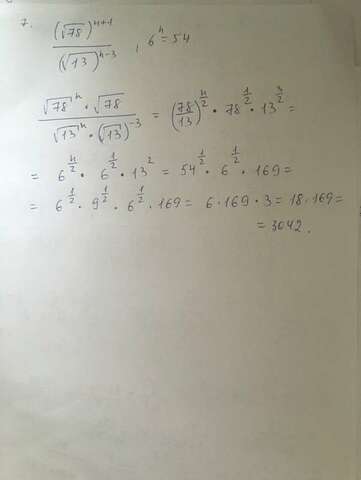 7. (√78)^(n+1) / (√13)^(n-3) , 6^n = 54
√78^n · √78 / √13^n · (√13)^(-3) = (78/13)^(n/2) · 78^(1/2) · 13^(3/2) =
= 6^(n/2) · 6^(1/2) · 13^2 = 54^(1/2) · 6^(1/2) · 169 =
= 6^(1/2) · 9^(1/2) · 6^(1/2) · 169 = 6 · 169 · 3 = 18 · 169 =
= 3042.